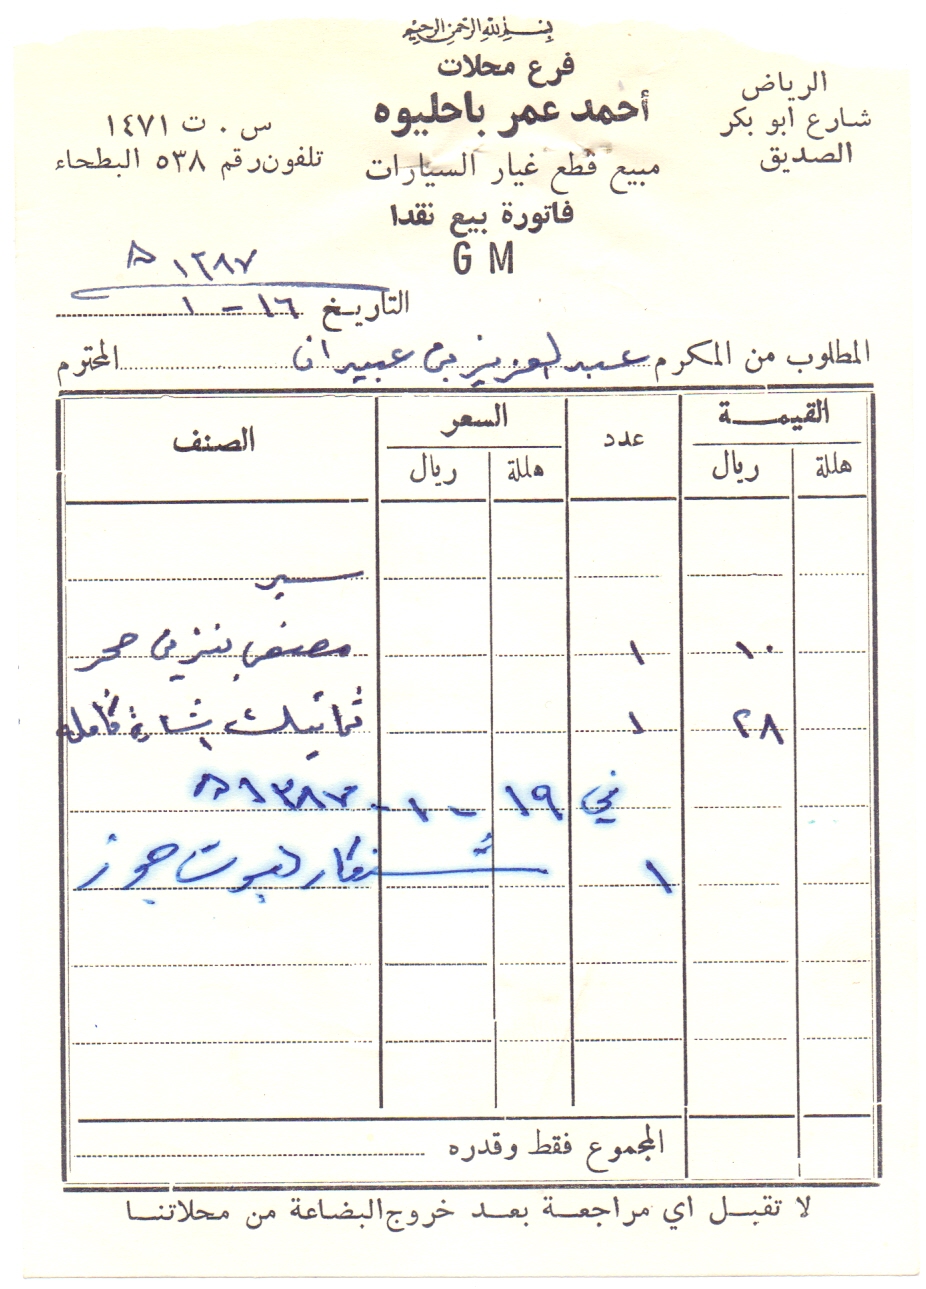 بسم الله الرحمن الرحيم
فرع محلات
أحمد عمر باحليوه
مبيع قطع غيار السيارات
فاتورة بيع نقدا
G M
الرياض
شارع ابو بكر
الصديق
س . ت ١٤٧١
تلفون رقم ٥٣٨ البطحاء
١٣٨٧ ه
التاريخ ١٦ - ١
المطلوب من المكرم عبدالعزيز بن عبيدان المحتوم
القيمة عدد السعر الصنف
هللة ريال هللة ريال
سير
١٠ ١ بنزين
٢٨ ١ اشارة كامله
في ١٩ - ١ - ١٣٨٧ ه
١ جوز
المجموع فقط وقدره
لا تقبل اي مراجعة بعد خروج البضاعة من محلاتنا